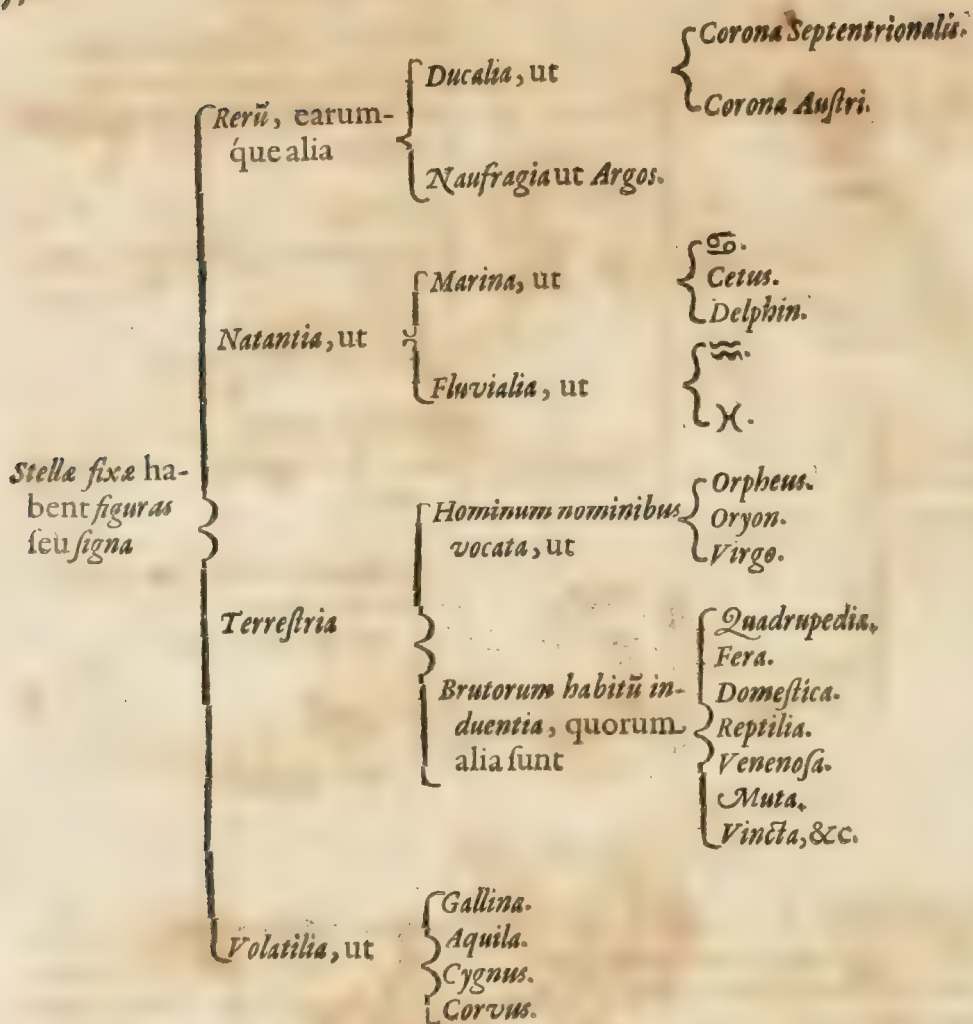 Stellæ fixæ ha-
bent figuras
ſeu ſigna
Rerū, earum-
q́ue alia
Ducalia, ut
Corona Septentrionalis.
Corona Auſtri.
Naufragia ut Argos.
Natantia, ut
Marina, ut
♋.
Cetus.
Delphin.
Fluvialia, ut
♒.
♓.
Terreſtria
Hominum nominibus
vocata, ut
Orpheus.
Oryon.
Virgo.
Brutorum habitū in-
duentia, quorum
alia ſunt
Quadrupedia.
Fera.
Domeſtica.
Reptilia.
Venenoſa.
Muta.
Vincta, &c.
Volatilia, ut
Gallina.
Aquila.
Cygnus.
Corvus.